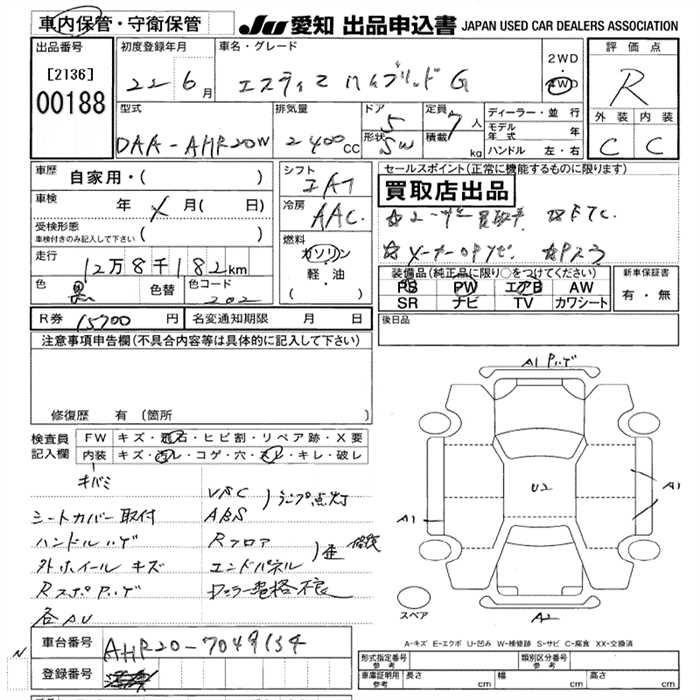 車内保管・守衛保管
JU 愛知 出品申込書 JAPAN USED CAR DEALERS ASSOCIATION
出品番号 初度登録年月 車名・グレード 評価点
[2136] 22年6月 エスティマ ハイブリッド G 2WD・4WD R
00188
型式 排気量 ドア 定員 ディーラー・並行 外装 内装
DAA-AHR20W 2400cc 5 7人 モデル年式 年 C C
形状 SW 積載 kg ハンドル 左・右
車歴 自家用・( ) シフト IAT セールスポイント(正常に機能するものに限ります)
車検 年 メ 月( 日) 冷房 AAC. 買取店出品
受検形態 車検付きのみ記入して下さい ( ) ☆ユーザー買取車 ☆ETC.
走行 12万8千182km 燃料 ガソリン・軽・油 ( )
色 黒 色替 色コード 202 装備品(純正品に限り○をつけてください) 新車保証書
PS PW エアB AW 有・無
SR ナビ TV カワシート
R券 15700円 名変通知期限 月 日 後日品
注意事項申告欄(不具合内容等は具体的に記入して下さい)
A1 ハゲ
修復歴 有 (箇所
検査員記入欄 FW キズ・飛石・ヒビ割・リペア跡・X要
内装 キズ・汚レ・コゲ・穴・スレ・キレ・破レ
キバミ VSC ランプ点灯
シートカバー取付 ABS
ハンドルハゲ Rフロア
外ホイールキズ エンドパネル
Rスポハゲ
各AU
U2
A1 A1
スペア
A2
車台番号 AHR20-7049154
登録番号
A-キズ E-エクボ U-凹み W-補修跡 S-サビ C-腐食 XX-交換済
形式指定番号 参考 類別区分番号 参考
車庫証明用 参考 長さ cm 幅 cm 高さ cm